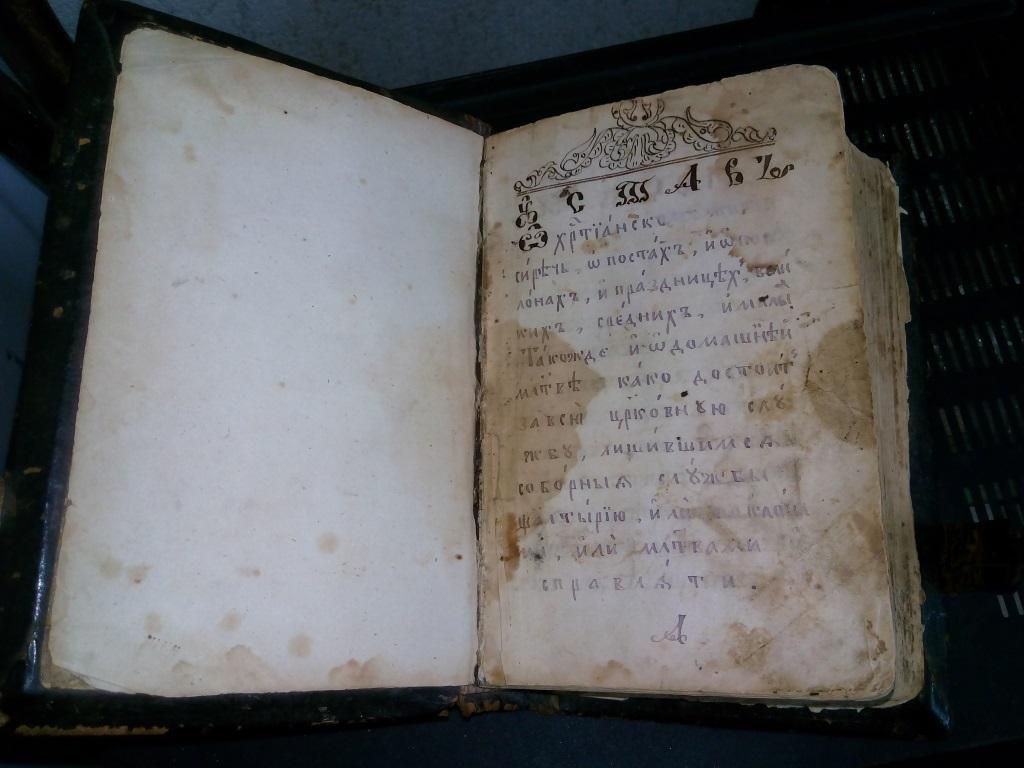 Ꙋ С Т А В Ъ
ѡ хрⷭ҇тїа́нско
си́рѣчь, ѡ поста́хъ, и҆ ѡ҆ по
ло́нахъ, и҆ пра́здницѣхъ, вели́
кихъ, сре́днихъ, и҆ ма́лы
Та́кожде и҆ ѡ҆ дома́шнѣй
мл҃твѣ ка́ко досто́итъ
за всю̀ цр҃ко́вную слꙋ́
жбꙋ, лиши́вшимсѧ
собо́рныѧ слꙋ́жбы
ѱалты́рїю, и҆лѝ покло́на
ми, и҆лѝ мл҃твами
справлѧ́ти.
А